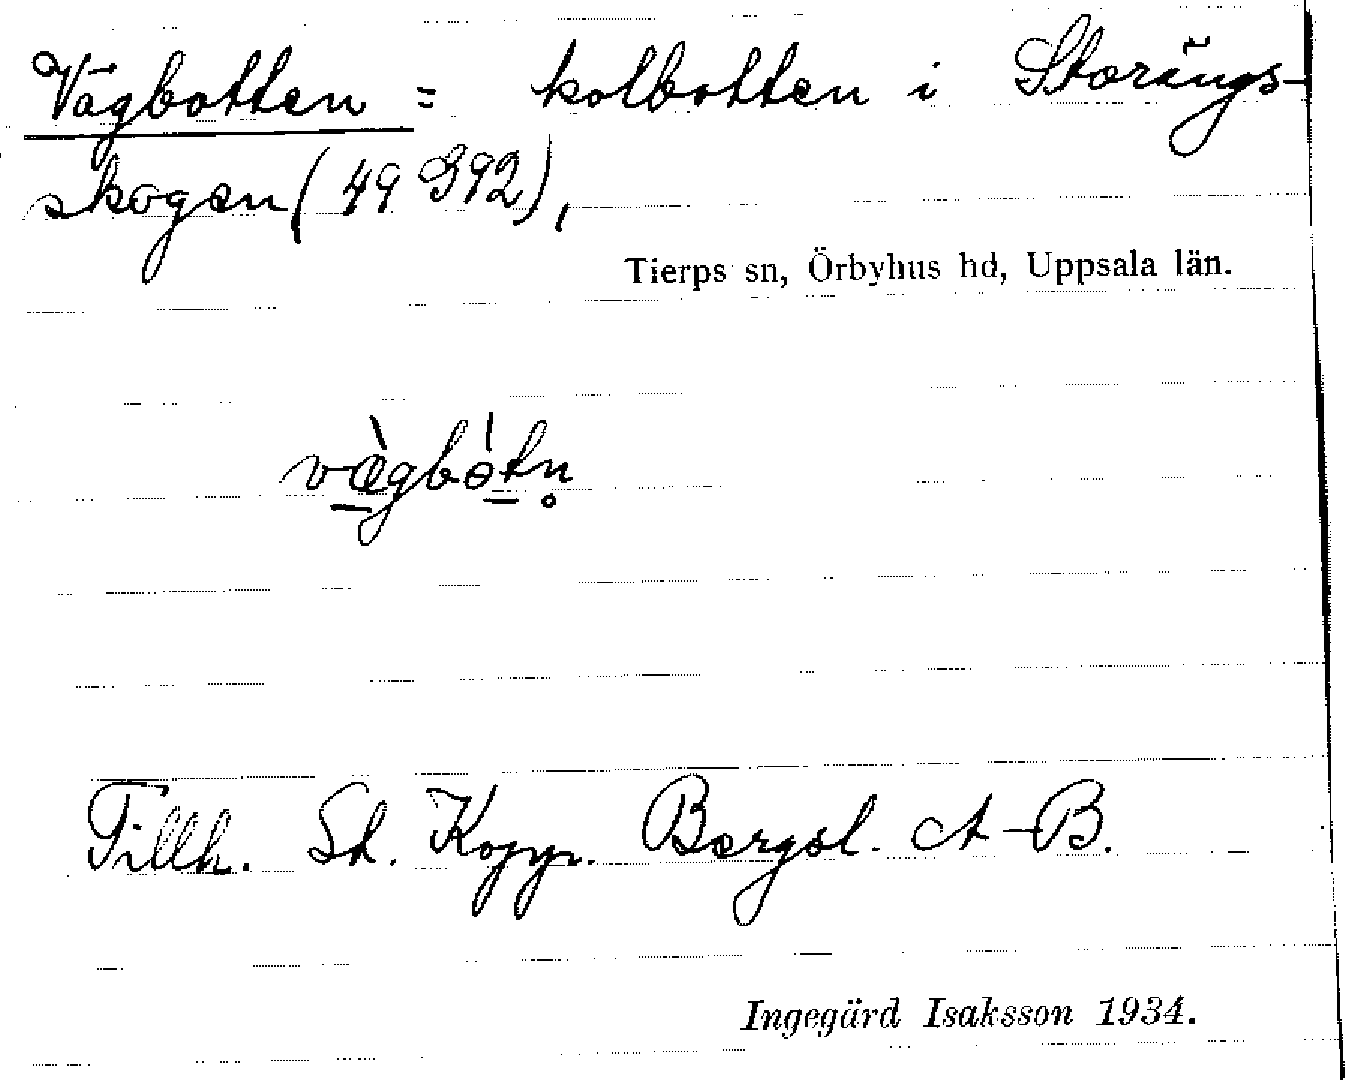 Vägbotten = kolbotten i Storängs-
skogen (49 392),
Tierps sn, Örbyhus hd, Uppsala län.
væ̀gbòtn̥
Tillh. St. Kopp. Bergsl. A-B.
Ingegärd Isaksson 1934.